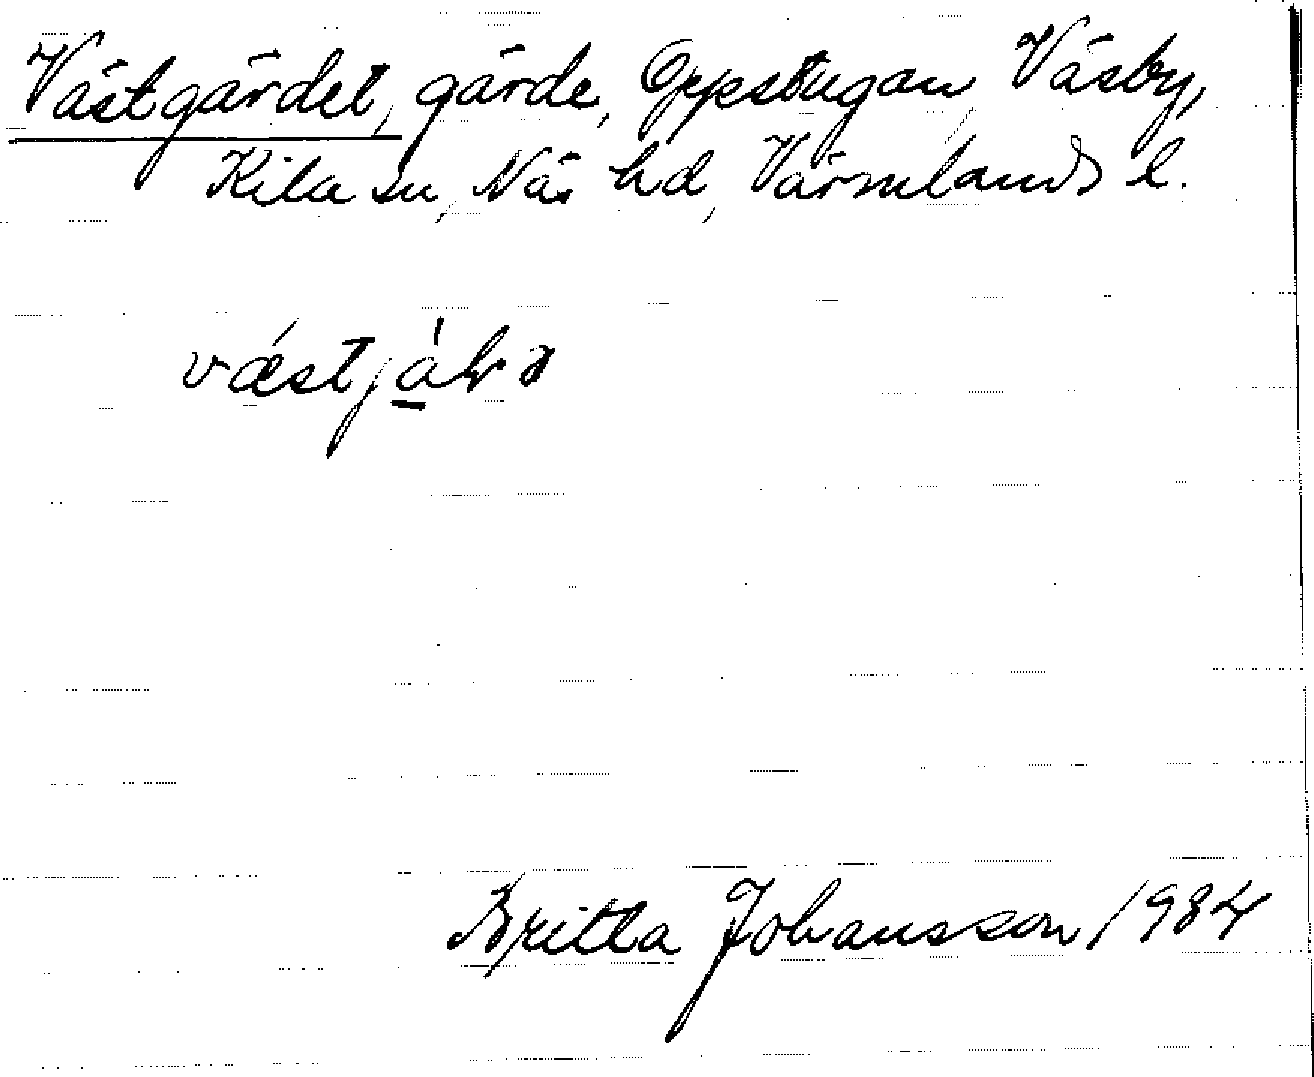 Västgärdet, gärde, Oppstugan, Väsby,
Kila sn, Näs hd, Värmlands l.
Britta Johansson 1984